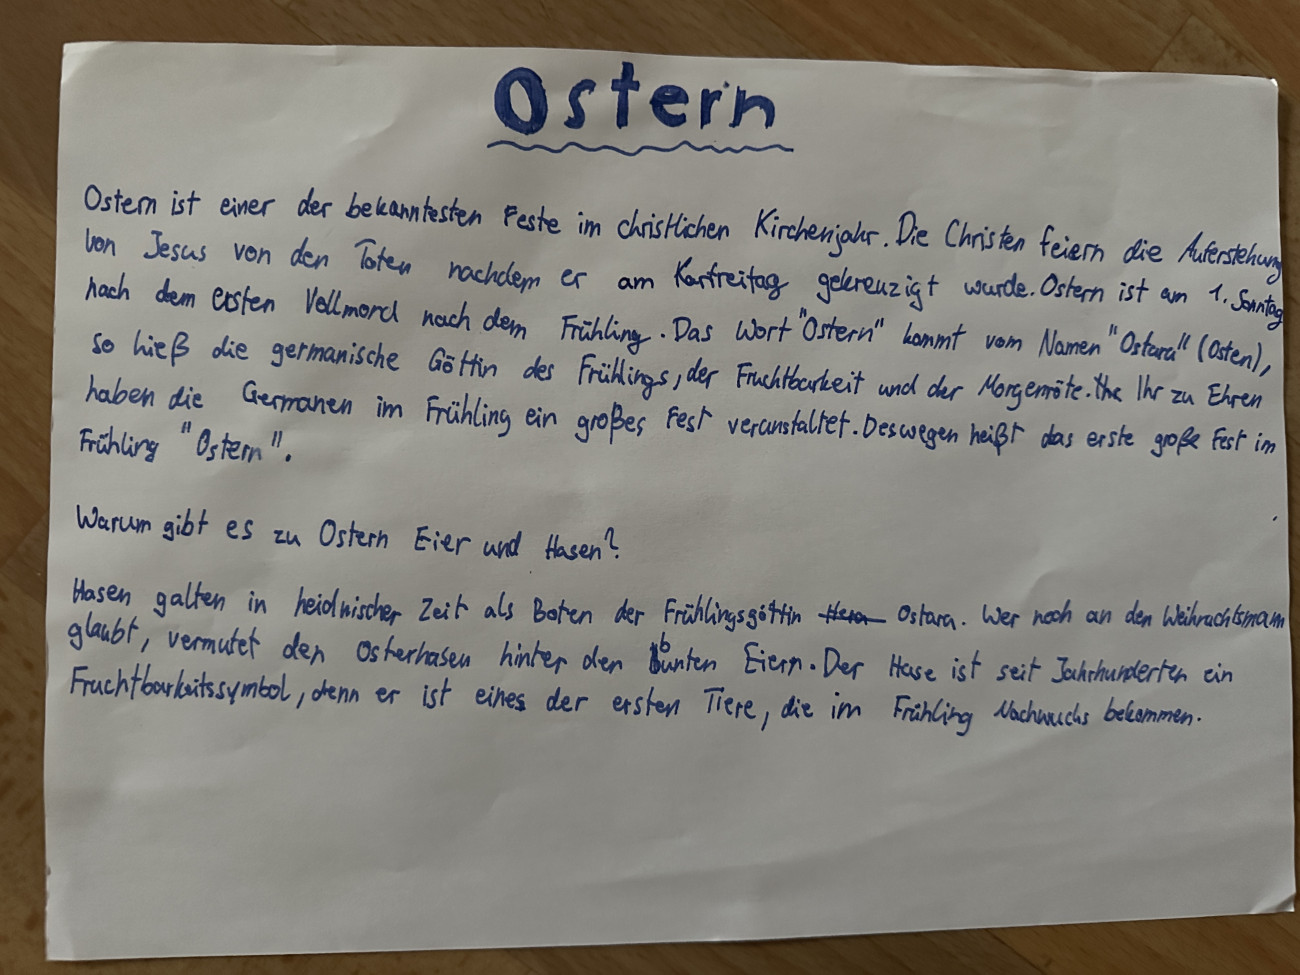 Ostern
Ostern ist einer der bekanntesten Feste im christlichen Kirchenjahr. Die Christen feiern die Auferstehung
von Jesus von den Toten nachdem er am Karfreitag gekreuzigt wurde. Ostern ist am 1. Sonntag
nach dem ersten Vollmond nach dem Frühling. Das Wort "Ostern" kommt vom Namen "Ostara" (Osten),
so hieß die germanische Göttin des Frühlings, der Fruchtbarkeit und der Morgenröte. Ihr zu Ehren
haben die Germanen im Frühling ein großes Fest veranstaltet. Deswegen heißt das erste große Fest im
Frühling "Ostern".
Warum gibt es zu Ostern Eier und Hasen?
Hasen galten in heidnischer Zeit als Boten der Frühlingsgöttin Ostara. Wer noch an den Weihnachtsmann
glaubt, vermutet den Osterhasen hinter den bunten Eiern. Der Hase ist seit Jahrhunderten ein
Fruchtbarkeitssymbol, denn er ist eines der ersten Tiere, die im Frühling Nachwuchs bekommen.